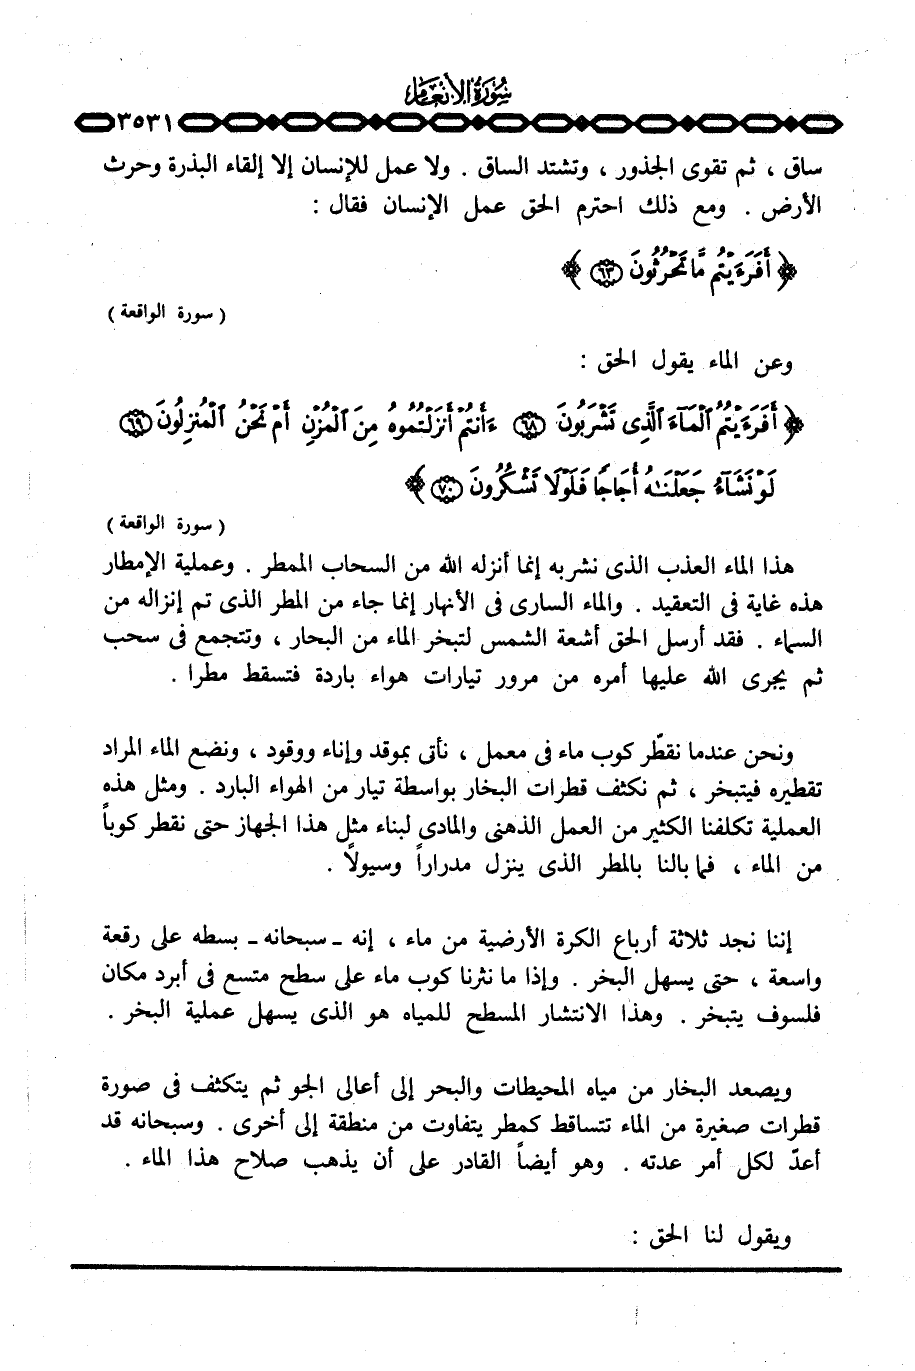 سورة الأنعام
٣٥٣١
ساق ، ثم تقوى الجذور ، وتشتد الساق . ولا عمل للإنسان إلا إلقاء البذرة وحرث
الأرض . ومع ذلك احترم الحق عمل الإنسان فقال :
﴿ أَفَرَءَيْتُم مَّا تَحْرُثُونَ ٦٣ ﴾
( سورة الواقعة )
وعن الماء يقول الحق :
﴿ أَفَرَءَيْتُمُ ٱلْمَآءَ ٱلَّذِى تَشْرَبُونَ ٦٨ ءَأَنتُمْ أَنزَلْتُمُوهُ مِنَ ٱلْمُزْنِ أَمْ نَحْنُ ٱلْمُنزِلُونَ ٦٩
لَوْ نَشَآءُ جَعَلْنَٰهُ أُجَاجًا فَلَوْلَا تَشْكُرُونَ ٧٠ ﴾
( سورة الواقعة )
هذا الماء العذب الذى نشربه إنما أنزله الله من السحاب الممطر . وعملية الإمطار
هذه غاية فى التعقيد . والماء السارى فى الأنهار إنما جاء من المطر الذى تم إنزاله من
السماء . فقد أرسل الحق أشعة الشمس لتبخر الماء من البحار ، وتتجمع فى سحب
ثم يجرى الله عليها أمره من مرور تيارات هواء باردة فتسقط مطرا .
ونحن عندما نقطّر كوب ماء فى معمل ، نأتى بموقد وإناء ووقود ، ونضع الماء المراد
تقطيره فيتبخر ، ثم نكثف قطرات البخار بواسطة تيار من الهواء البارد . ومثل هذه
العملية تكلفنا الكثير من العمل الذهنى والمادى لبناء مثل هذا الجهاز حتى نقطر كوباً
من الماء ، فما بالنا بالمطر الذى ينزل مدراراً وسيولاً .
إننا نجد ثلاثة أرباع الكرة الأرضية من ماء ، إنه ـ سبحانه ـ بسطه على رقعة
واسعة ، حتى يسهل البخر . وإذا ما نثرنا كوب ماء على سطح متسع فى أبرد مكان
فلسوف يتبخر . وهذا الانتشار المسطح للمياه هو الذى يسهل عملية البخر .
ويصعد البخار من مياه المحيطات والبحر إلى أعالى الجو ثم يتكثف فى صورة
قطرات صغيرة من الماء تتساقط كمطر يتفاوت من منطقة إلى أخرى . وسبحانه قد
أعدّ لكل أمر عدته . وهو أيضاً القادر على أن يذهب صلاح هذا الماء .
ويقول لنا الحق :